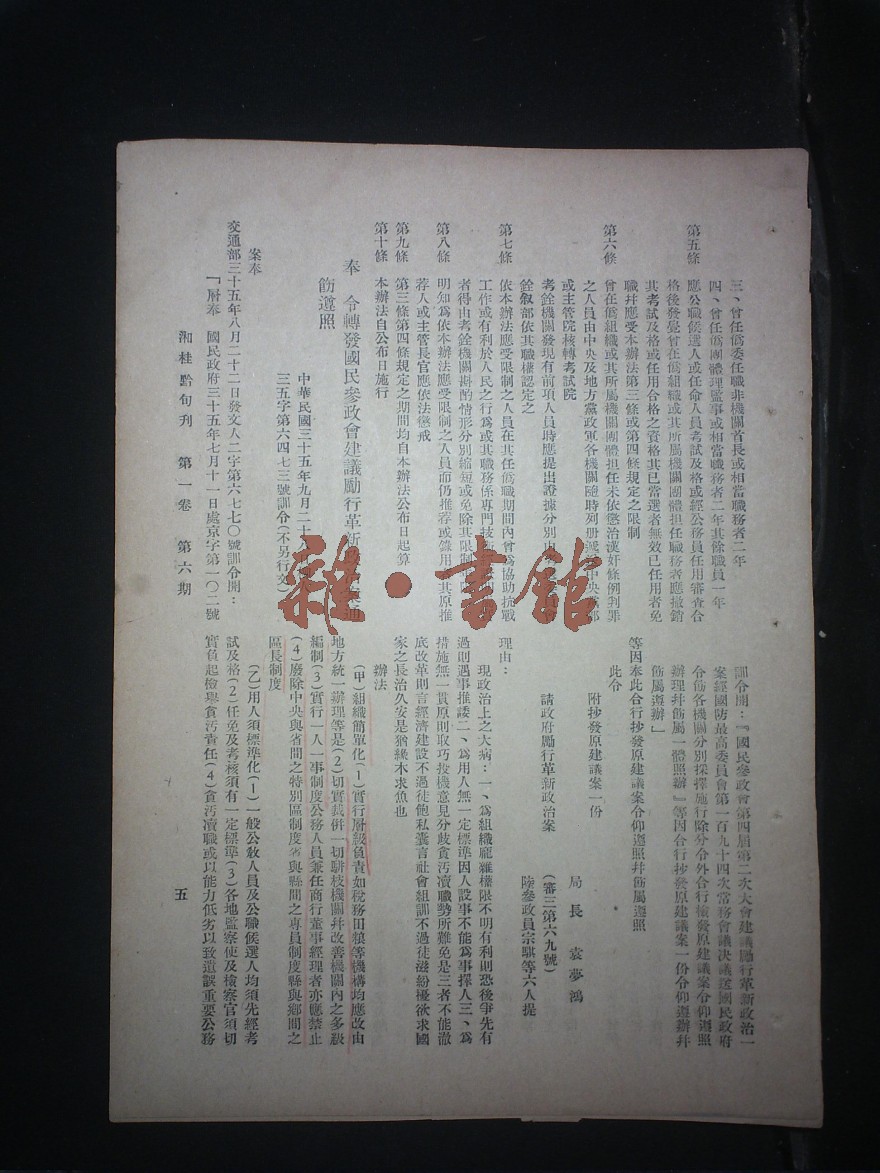 三、曾任僞委任職非機關首長或相當職務者二年
四、曾任僞團體理監事或相當職務者二年其餘職員一年
第五條　應公職候選人或任命人員考試及格或經公務員任用審查合
格後發覺曾在僞組織或其所屬機關團體担任職務者應撤銷
其考試及格或任用合格之資格其已當選者無效已任用者免
職幷應受本辦法第三條或第四條規定之限制
第六條　曾在僞組織或其所屬機關團體担任未依懲治漢奸條例判罪
之人員由中央及地方黨政軍各機關隨時列册 中央
或主管院核轉考試院
考銓機關發現有前項人員時應提出證據分別由
銓敍部依其職權認定之
第七條　依本辦法應受限制之人員在其任僞職期間內曾爲協助抗戰
工作或有利於人民之行爲或其職務係專門技術
者得由考銓機關斟酌情形分別縮短或免除其限制
第八條　明知爲依本辦法應受限制之人員而仍推荐或錄用 其原推
荐人或主管長官應依法懲戒
第九條　第三條第四條規定之期間均自本辦法公布日起算
第十條　本辦法自公布日施行
奉　令轉發國民參政會建議勵行革新政
飭遵照
中華民國三十五年九月二十八
三五字第六四七三號訓令（不另行文）
案奉
交通部三十五年八月二十二日發文人二字第六七七〇號訓令開：
「層奉　國民政府三十五年七月十一日處京字第一〇二號
湘桂黔旬刊　第一卷　第六期
訓令開：『國民參政會第四屆第二次大會建議勵行革新政治一
案經國防最高委員會第一百九十四次常務會議决議送國民政府
令飭各機關分別採擇施行除分令外合行檢發原建議案令仰遵照
辦理幷飭屬一體照辦』等因合行抄發原建議案一份令仰遵辦幷
飭屬遵辦」
等因奉此合行抄發原建議案令仰遵照幷飭屬遵照
此令
附抄發原建議案一份
局長　袁夢鴻
請政府勵行革新政治案　（審三第六九號）
陸參政員宗騏等六人提
理由：
現政治上之大病：一、爲組織龐雜權限不明有利則恐後爭先有
過則遇事推諉二、爲用人無一定標準因人設事不能爲事擇人三、爲
措施無一貫原則取巧投機意見分歧貪汚瀆職勢所難免是三者不能澈
底改革則言經濟建設不過徒飽私囊言社會組訓不過徒滋紛擾欲求國
家之長治久安是猶緣木求魚也
辦法
（甲）組織簡單化（1）實行層級負責如稅務田粮等機構均應改由
地方統一辦理等是（2）切實裁併一切駢枝機關幷改善機關內之多級
編制（3）實行一人一事制度公務人員兼任商行董事經理者亦應禁止
（4）廢除中央與省間之特別區制度省與縣間之專員制度縣與鄉間之
區長制度
（乙）用人須標準化（1）一般公敎人員及公職候選人均須先經考
試及格（2）任免及考核須有一定標準（3）各地監察使及檢察官須切
實負起檢舉貪汚責任（4）貪汚瀆職或以能力低劣以致遺誤重要公務
五
雜·書館